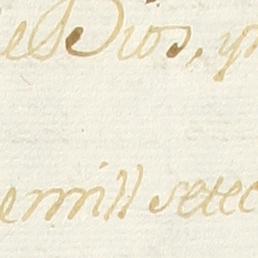 de Dios, y
de mill setec